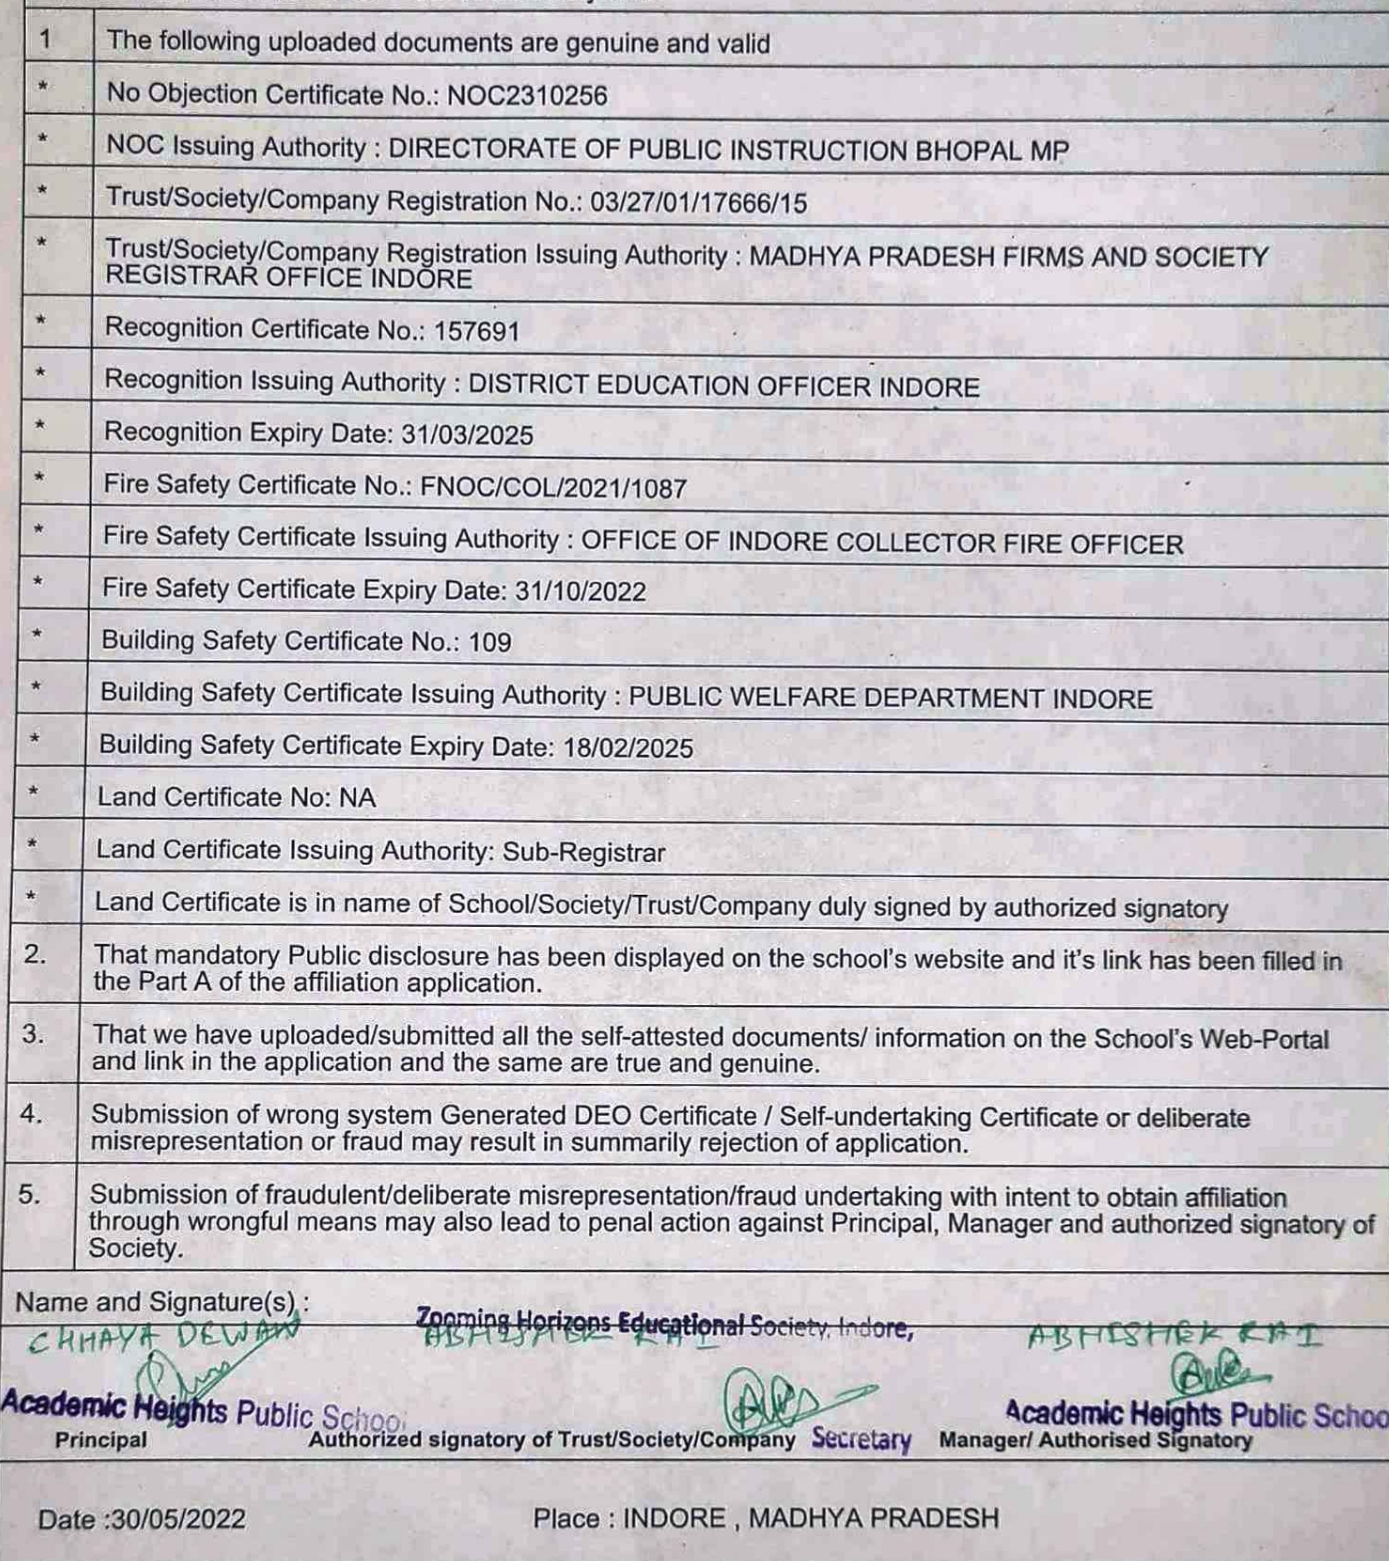 1 The following uploaded documents are genuine and valid
* No Objection Certificate No.: NOC2310256
* NOC Issuing Authority : DIRECTORATE OF PUBLIC INSTRUCTION BHOPAL MP
* Trust/Society/Company Registration No.: 03/27/01/17666/15
* Trust/Society/Company Registration Issuing Authority : MADHYA PRADESH FIRMS AND SOCIETY
REGISTRAR OFFICE INDORE
* Recognition Certificate No.: 157691
* Recognition Issuing Authority : DISTRICT EDUCATION OFFICER INDORE
* Recognition Expiry Date: 31/03/2025
* Fire Safety Certificate No.: FNOC/COL/2021/1087
* Fire Safety Certificate Issuing Authority : OFFICE OF INDORE COLLECTOR FIRE OFFICER
* Fire Safety Certificate Expiry Date: 31/10/2022
* Building Safety Certificate No.: 109
* Building Safety Certificate Issuing Authority : PUBLIC WELFARE DEPARTMENT INDORE
* Building Safety Certificate Expiry Date: 18/02/2025
* Land Certificate No: NA
* Land Certificate Issuing Authority: Sub-Registrar
* Land Certificate is in name of School/Society/Trust/Company duly signed by authorized signatory
2. That mandatory Public disclosure has been displayed on the school's website and it's link has been filled in
the Part A of the affiliation application.
3. That we have uploaded/submitted all the self-attested documents/ information on the School's Web-Portal
and link in the application and the same are true and genuine.
4. Submission of wrong system Generated DEO Certificate / Self-undertaking Certificate or deliberate
misrepresentation or fraud may result in summarily rejection of application.
5. Submission of fraudulent/deliberate misrepresentation/fraud undertaking with intent to obtain affiliation
through wrongful means may also lead to penal action against Principal, Manager and authorized signatory of
Society.
Name and Signature(s) :
Zooming Horizons Educational Society, Indore,
CHHAYA DEWAN ABHISHEK RAI ABHISHEK RAI
Academic Heights Public School Academic Heights Public Schoo
Principal Authorized signatory of Trust/Society/Company Secretary Manager/ Authorised Signatory
Date :30/05/2022 Place : INDORE , MADHYA PRADESH